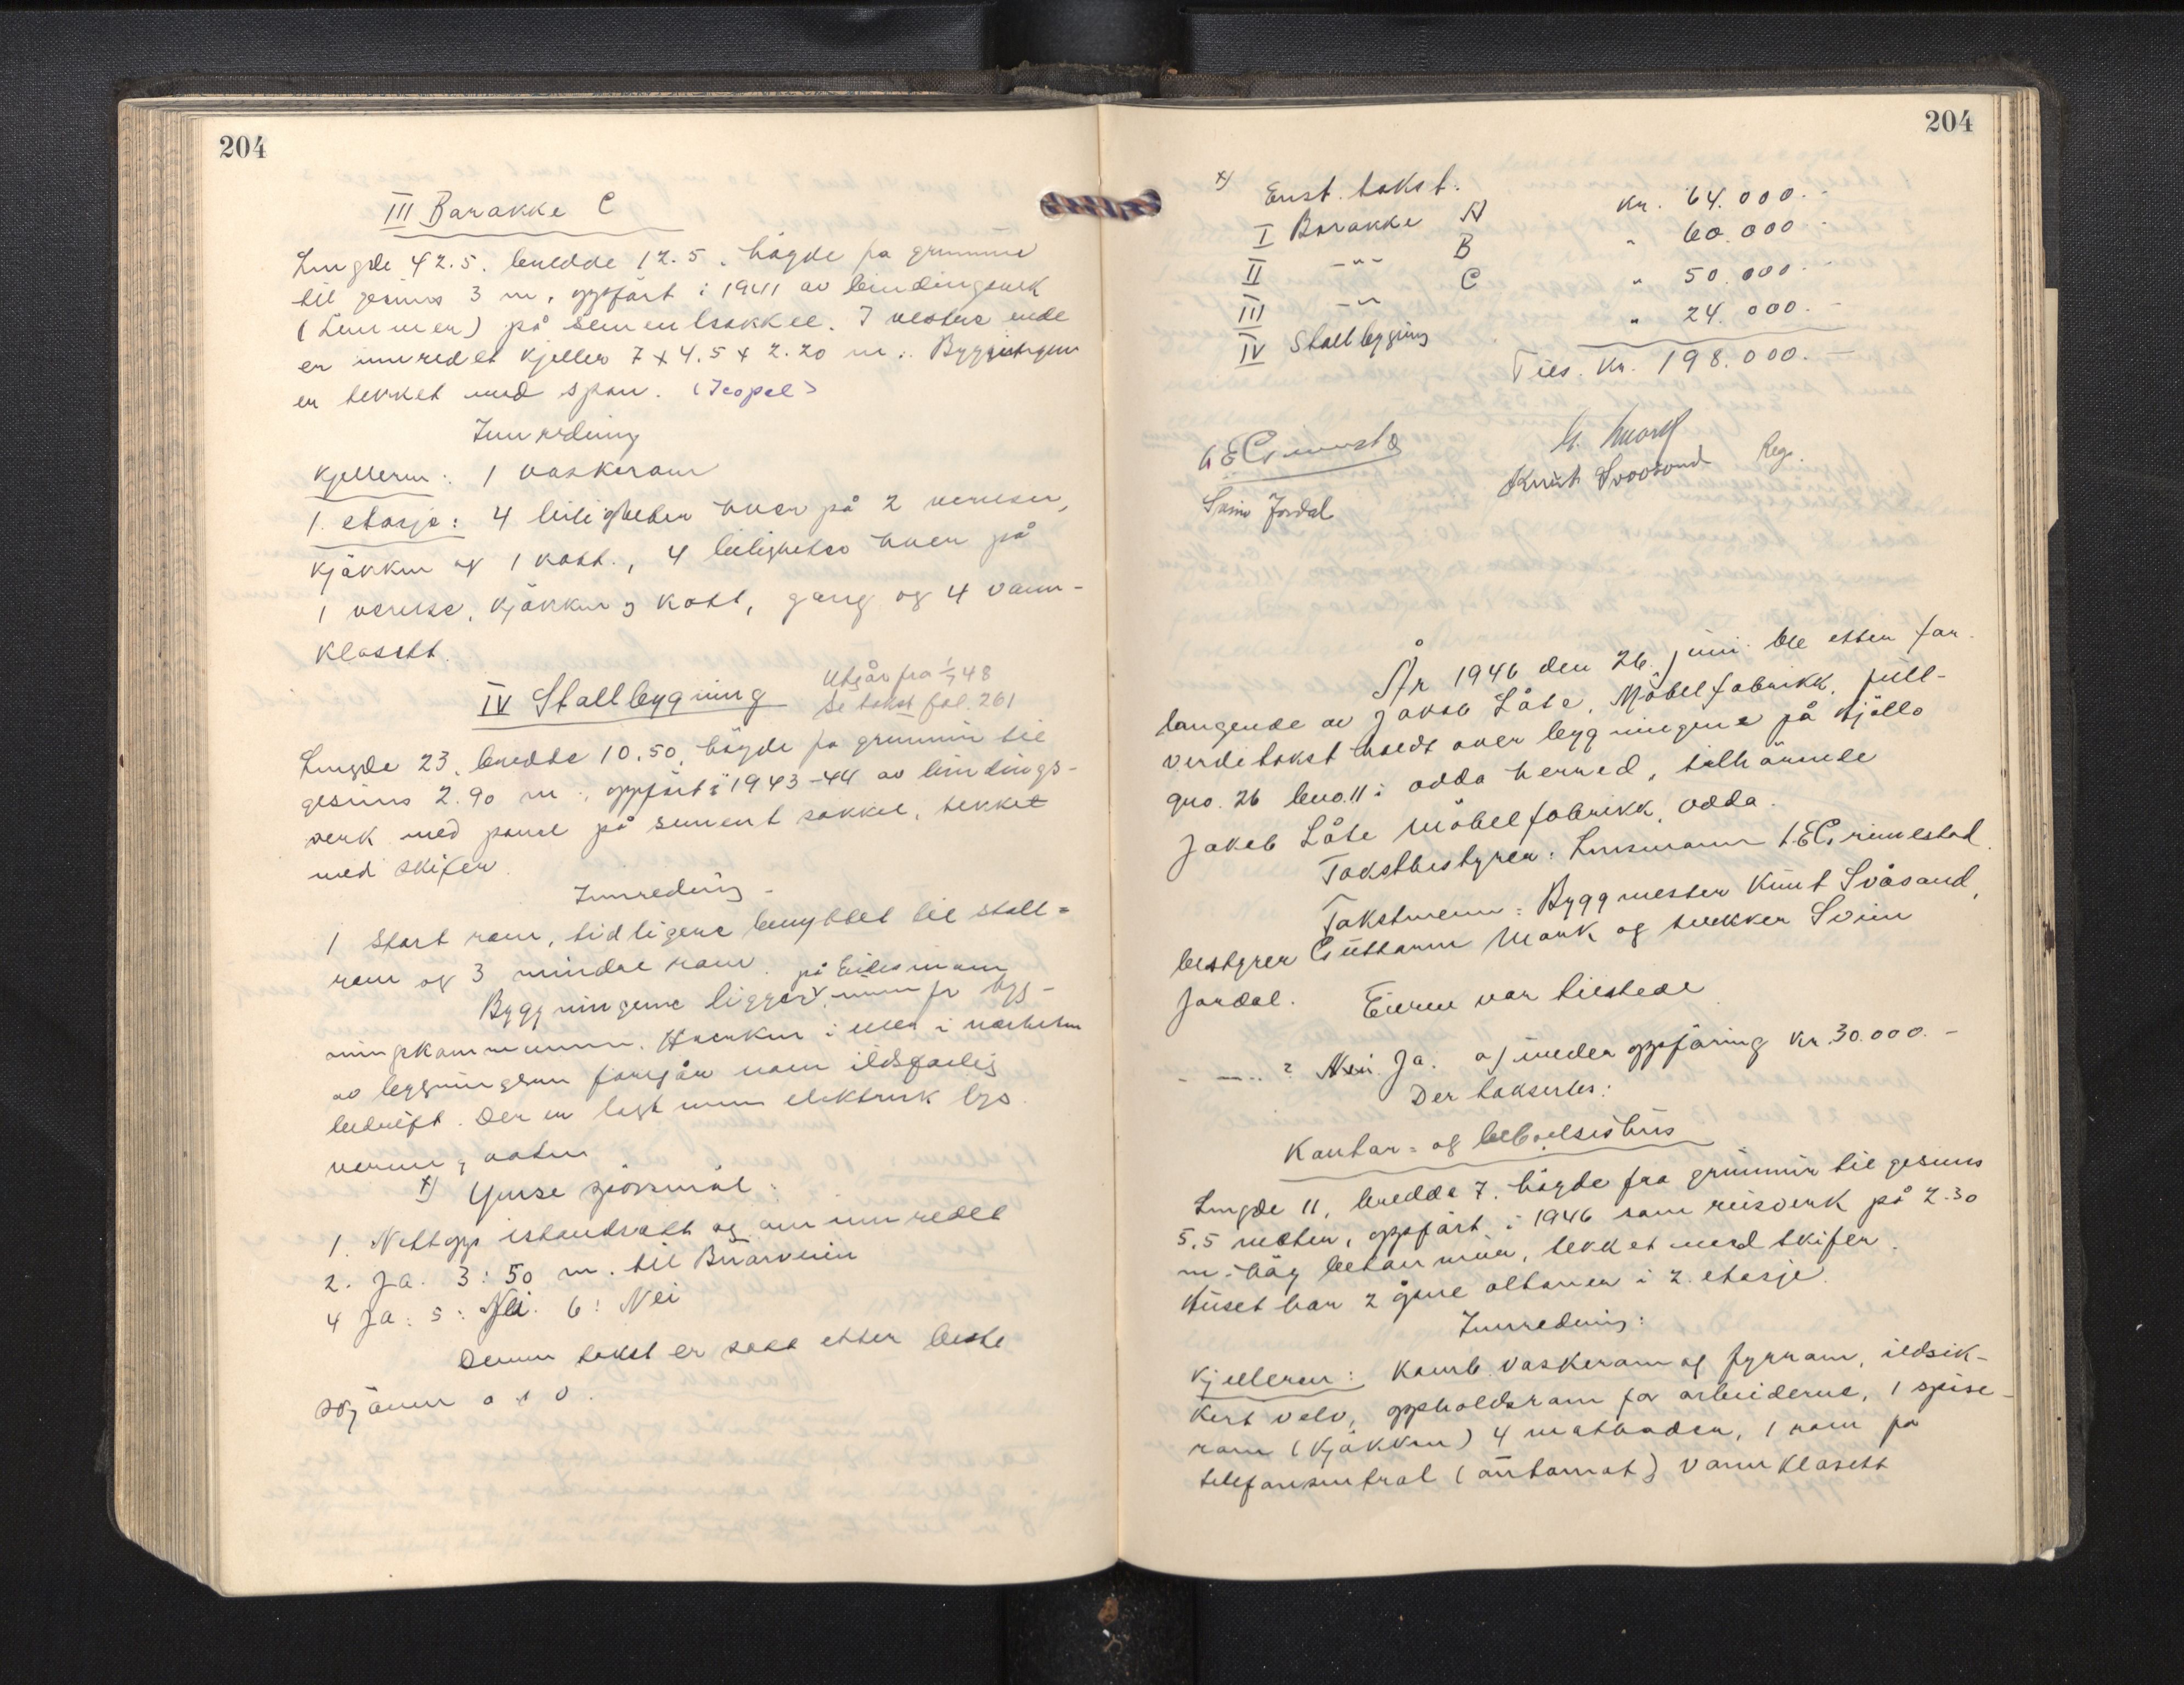 204
III Barakke C
Lengde 42.5. bredde 12.5. högde fra grunnmur
til gesims 3 m, oppfört i 1941 av bindingsverk
(Lemmer) på sementsokkel. I vestre ende
er innredet kjeller 7 x 4.5 x 2.20 m. Byggningen
er tekket med spon. (Icopal)
Innredning
Kjelleren: 1 vaskerom
1. etasje: 4 leiligheter hver på 2 verelser,
kjökken og 1 kott., 4 leiligheter hver på
1 verelse, kjökken og kott, gang og 4 vann-
klosett.
IV Stallbygning
Utgår fra 1/7 48
Se takst fol. 261
Lengde 23, bredde 10.50, högde fra grunnmur til
gesims 2.90 m., oppfört i 1943-44 av bindings-
verk med panel på sement sokkel, tekket
med skifer.
Innredning
1 stort rom, tidligere benyttet til stall=
rom og 3 mindre rom.
på Eidesmoen
Byggningene ligger innenfor byg-
ningskommunen. Hverken i eller i nærheten
av bygningene foregår noen ildsfarlig
bedrift. Der er lagt inn elektrisk lys
varme og vatn
x) Ymse spörsmål:
1. Nettopp istandsatt og ominnredet
2. Ja. 3: 50 m. til Buarveien
4 Ja: 5: Nei. 6: Nei
Denne takst er satt etter beste
skjönn o s v.
204
x) Enst. takst:
I Barakke A kr. 64.000.-
II -"- B " 60.000.-
III -"- C " 50.000.-
IV Stallbygging " 24.000.-
Tils. kr. 198.000.-
G. Mark
Knut Svaasand Rege.
Svein Jordal
År 1946 den 26. juni ble etter for-
langende av Jakob Låte, Möbelfabrikk, full-
verditakst holdt over bygningene på Hjöllo
gno. 26 bno. 11 i Odda herred, tilhörende
Jakob Låte Möbelfabrikk, Odda.
Takstbestyrer: Lensmann L.E. Grimestad.
Takstmenn: Byggmester Knut Svåsand,
bestyrer Guttorm Mark og snekker Svein
Jordal.
Eieren var tilstede
- -..? Nei. Ja. a) under oppföring kr. 30.000.-
Der takseres:
Kontor= og beboelseshus
Lengde 11, bredde 7. högde fra grunnmur til gesims
5,5 meter, oppfört i 1946 som reisverk på 2.30
m. höy betonmur, tekket med skifer.
Huset har 2 åpne altaner i 2. etasje.
Innredning:
Kjelleren: Komb. vaskerom og fyrrom, ildsik-
kert velv, oppholdsrom for arbeiderne, 1 spise-
rom (kjökken) 4 matboder, 1 rom for
telefonsentral (automat) vannklosett